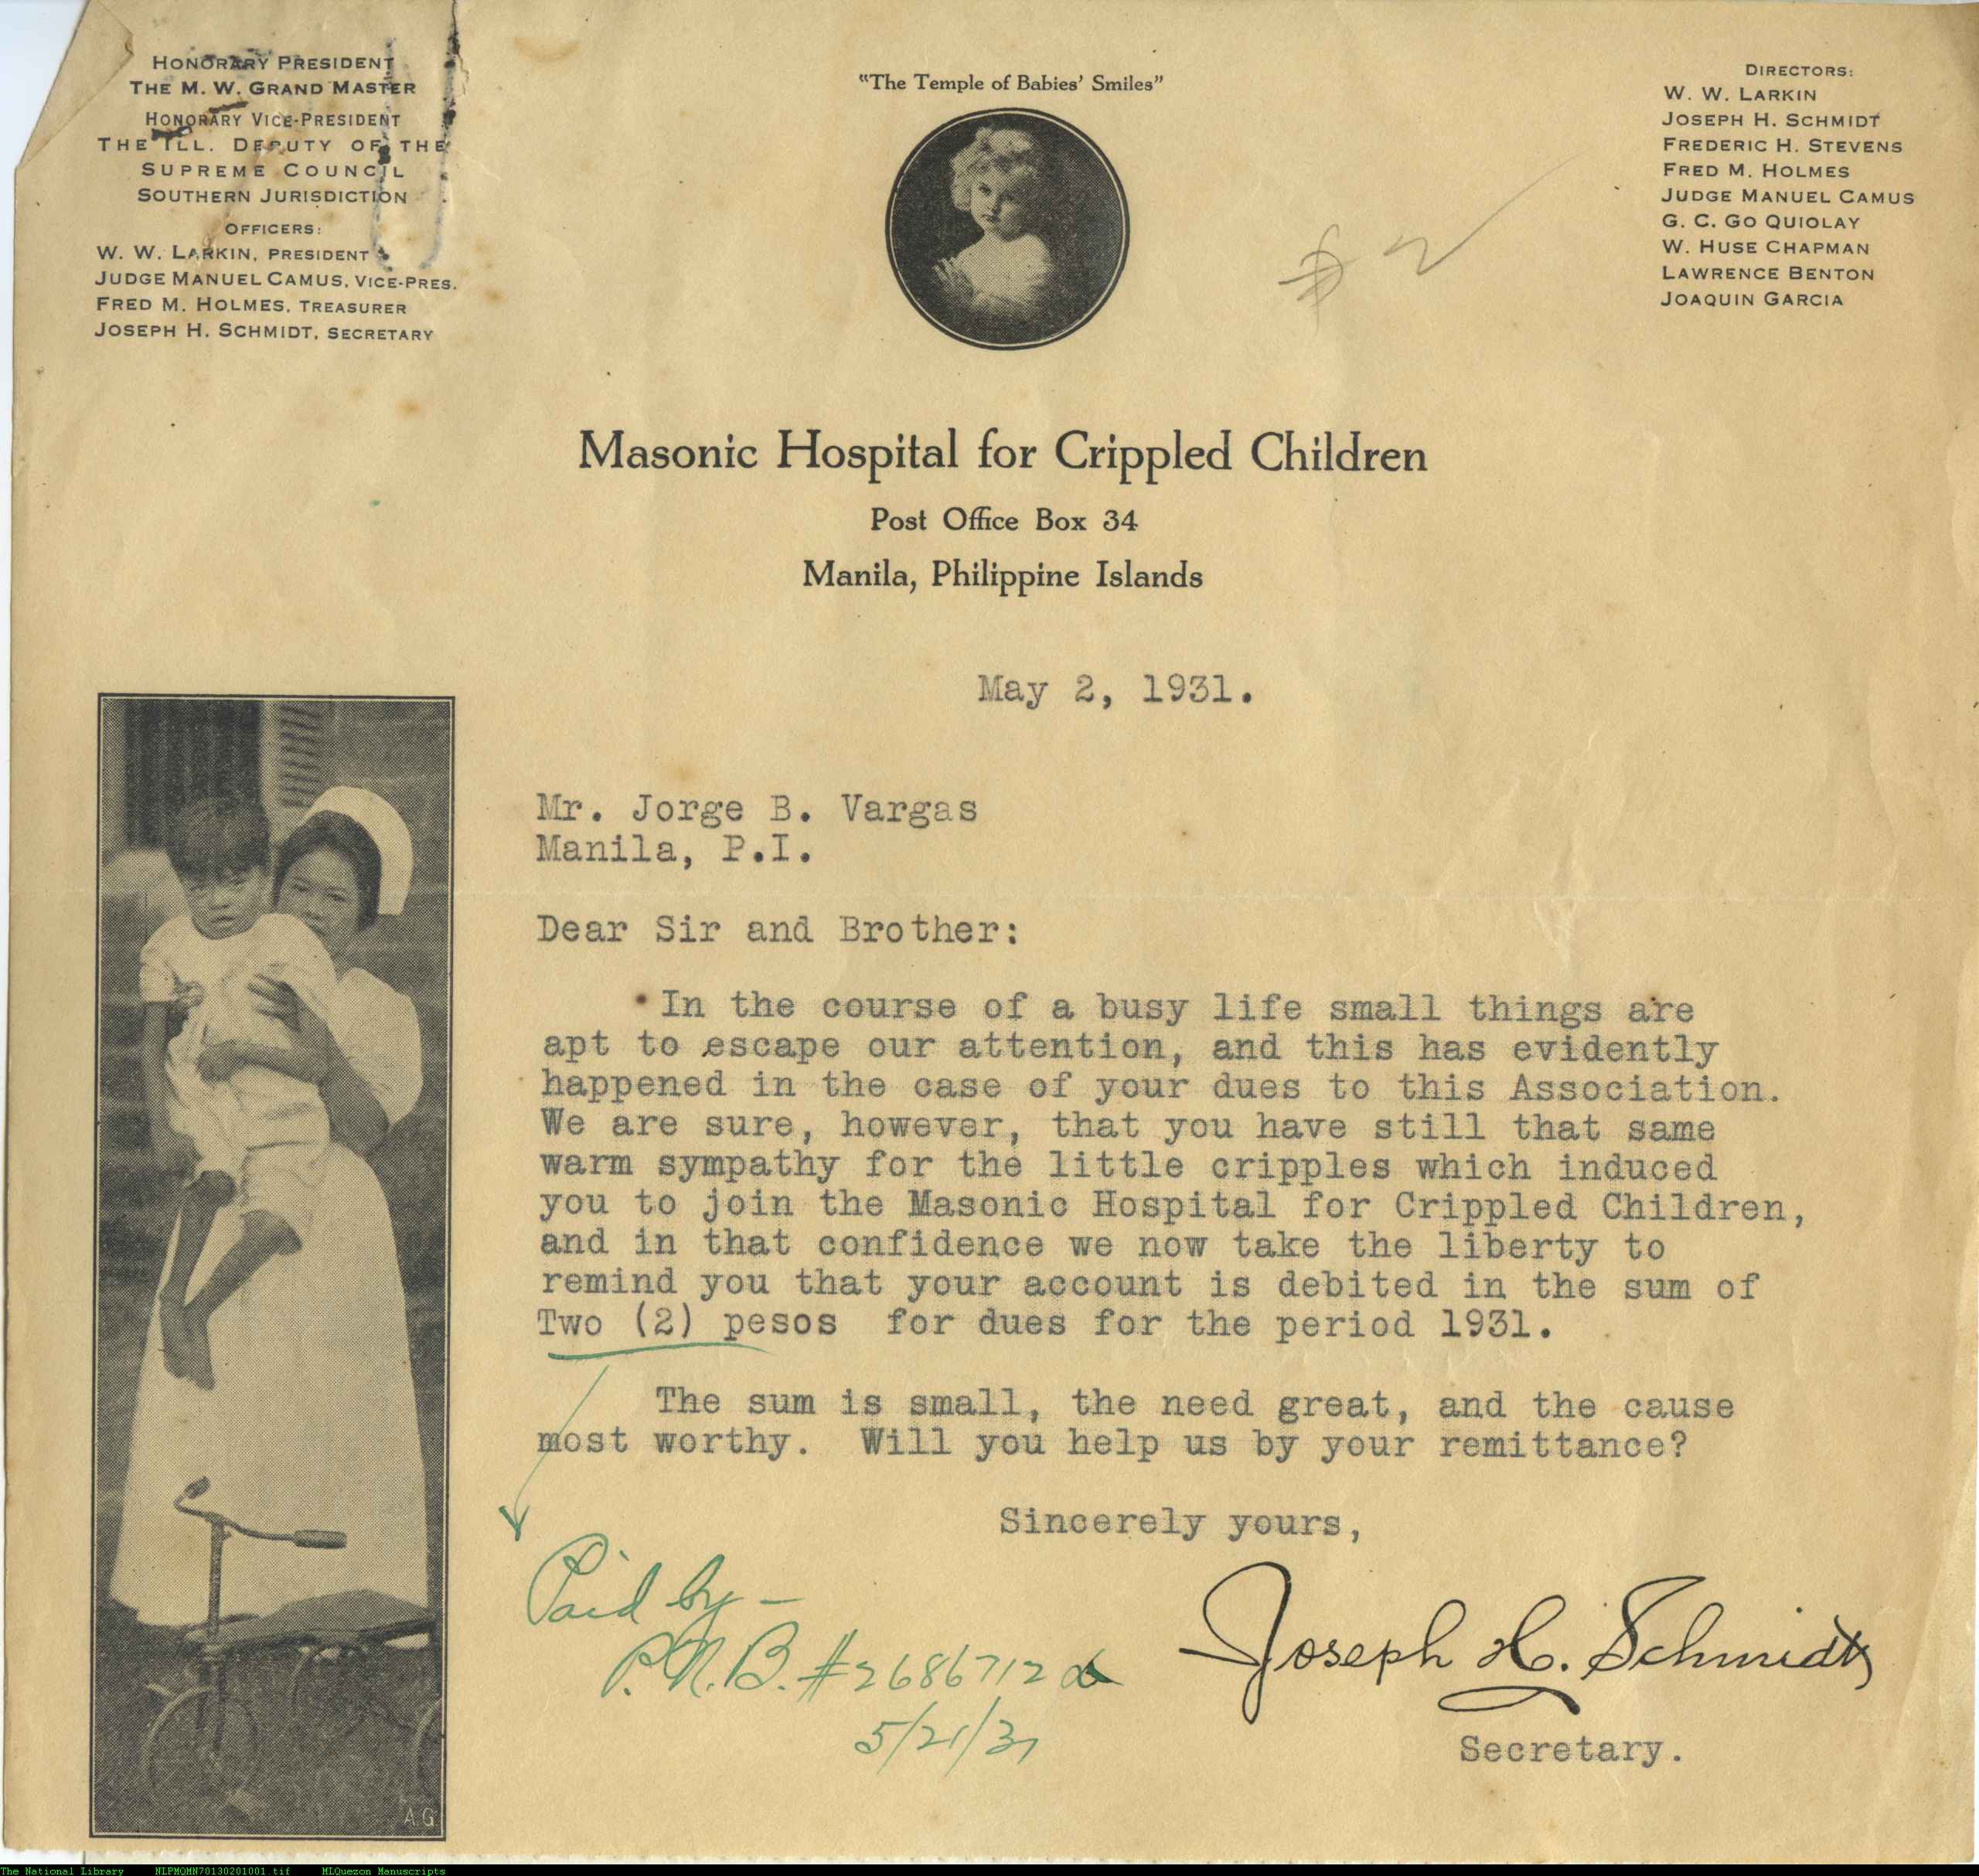 HONORARY PRESIDENT
THE M. W. GRAND MASTER
HONORARY VICE-PRESIDENT
THE ILL. DEPUTY OF THE
SUPREME COUNCIL
SOUTHERN JURISDICTION
OFFICERS:
W. W. LARKIN, PRESIDENT
JUDGE MANUEL CAMUS, VICE-PRES.
FRED M. HOLMES, TREASURER
JOSEPH H. SCHMIDT, SECRETARY
"The Temple of Babies' Smiles"
DIRECTORS:
W. W. LARKIN
JOSEPH H. SCHMIDT
FREDERIC H. STEVENS
FRED M. HOLMES
JUDGE MANUEL CAMUS
G. C. GO QUIOLAY
W. HUSE CHAPMAN
LAWRENCE BENTON
JOAQUIN GARCIA
Masonic Hospital for Crippled Children
Post Office Box 34
Manila, Philippine Islands
May 2, 1931.
Mr. Jorge B. Vargas
Manila, P.I.
Dear Sir and Brother:
In the course of a busy life small things are
apt to escape our attention, and this has evidently
happened in the case of your dues to this Association.
We are sure, however, that you have still that same
warm sympathy for the little cripples which induced
you to join the Masonic Hospital for Crippled Children,
and in that confidence we now take the liberty to
remind you that your account is debited in the sum of
Two (2) pesos for dues for the period 1931.
The sum is small, the need great, and the cause
most worthy. Will you help us by your remittance?
Sincerely yours,
Paid by -
P.N.B. #2686712
5/21/31
Joseph H. Schmidt
Secretary.
AG
The National Library NLPMQMN70130201001.tif MLQuezon Manuscripts